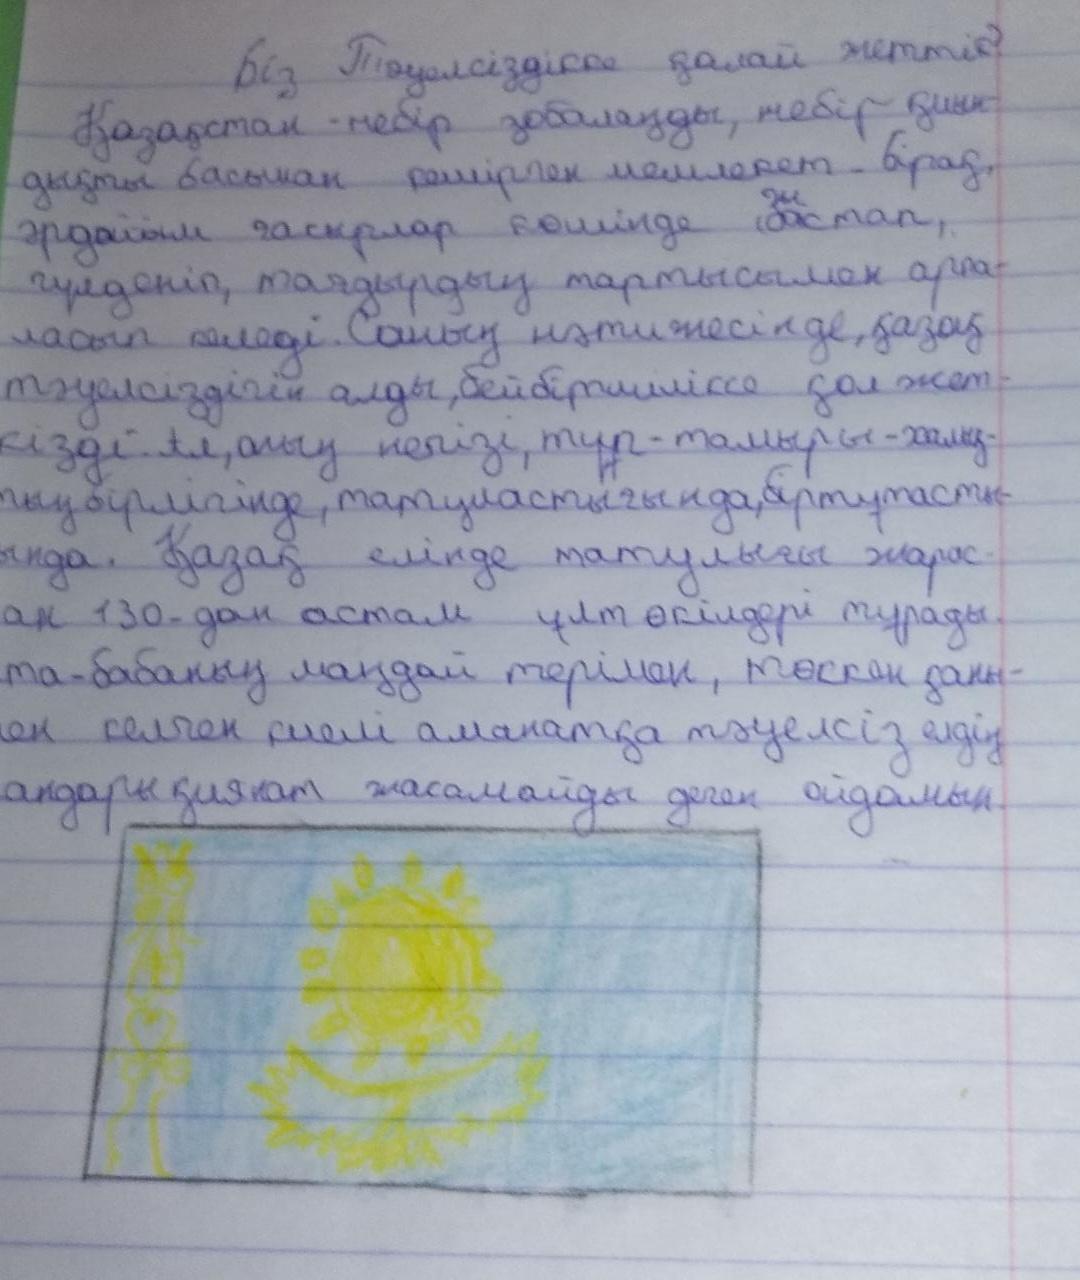 Біз Тәуелсіздікке қалай жеттік?
Қазақстан - небір зобалаңды, небір қиын
дықты басынан кешірген мемлекет. Бірақ,
әрдайым ғасырлар көшінде жасап,
гүлденіп, тағдырдың тартысымен арпа-
ласып келеді. Соның нәтижесінде, қазақ
тәуелсіздігін алды, бейбітшілікке қол жет-
кізді. Ал, оның негізі, түп-тамыры-халық-
ның бірлігінде, татуластығында, біртұтасты-
ында. Қазақ елінде татулығы жарас-
ан 130-дан астам ұлт өкілдері тұрады.
та-бабаның маңдай терімен, төккен қаны-
ен келген киелі аманатқа тәуелсіз елдің
андары қиянат жасамайды деген ойдамын